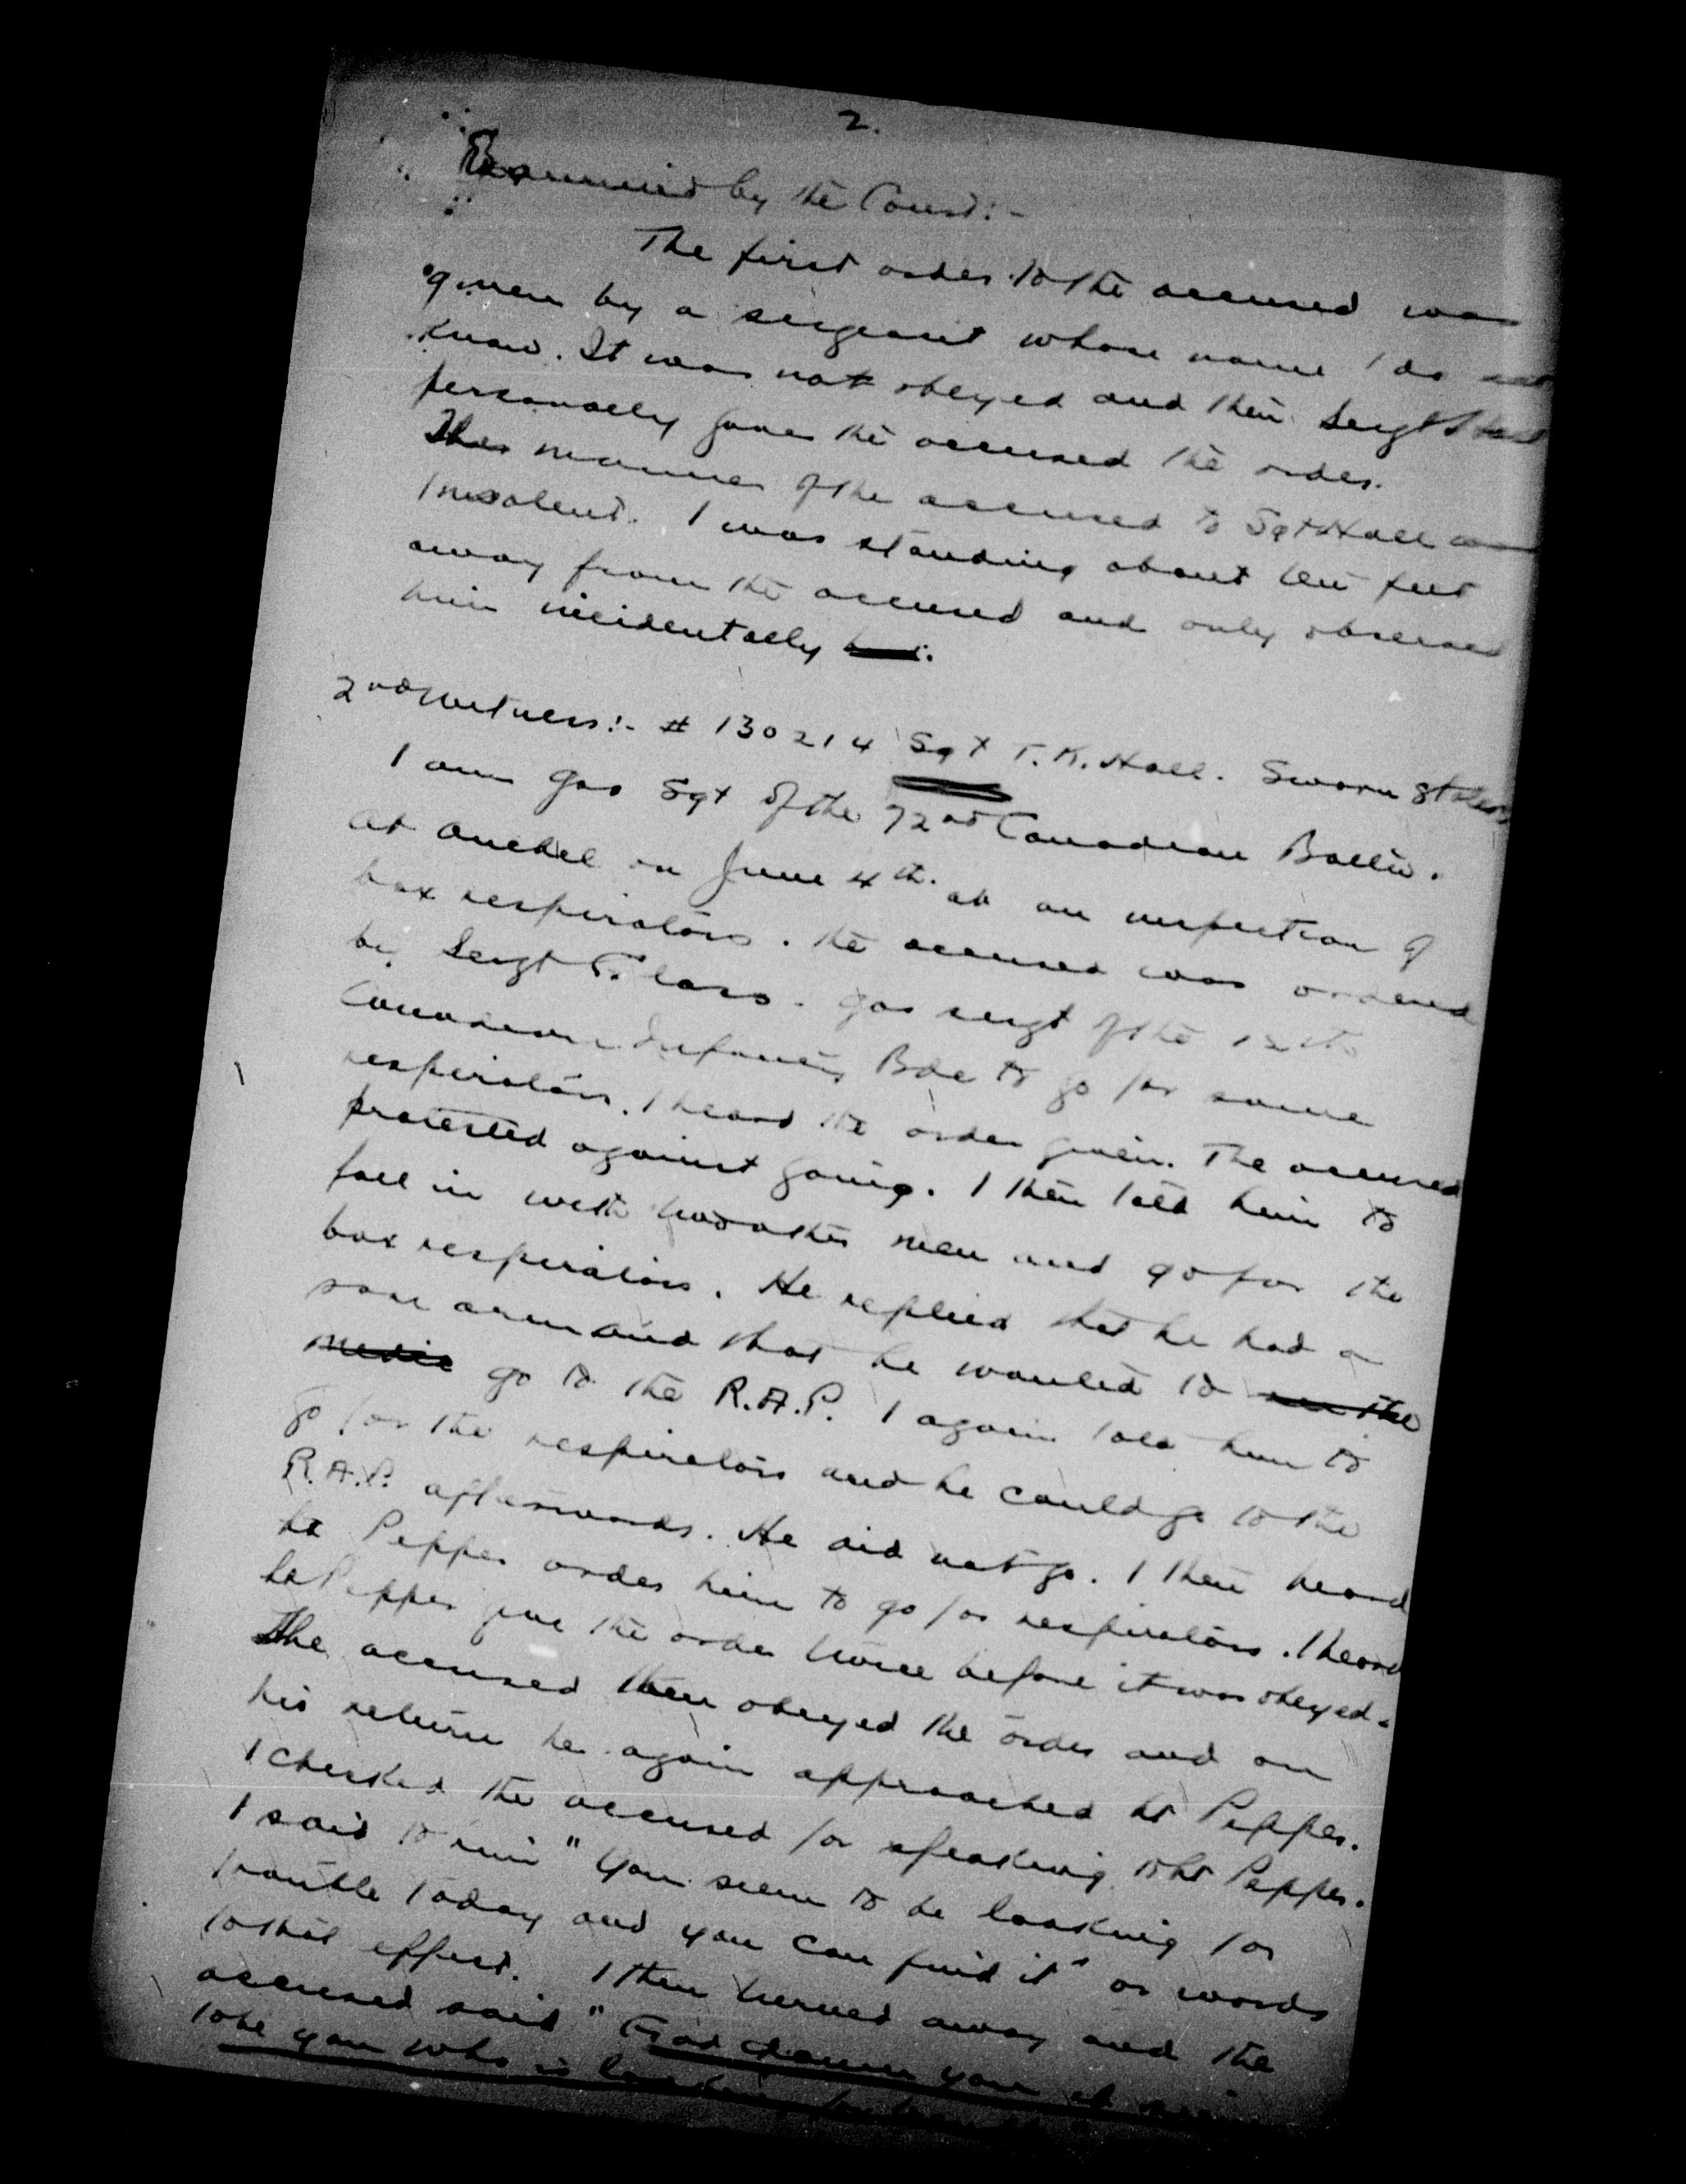 2.
Examined by the Court:-
The first order to the accused was
given by a sergeant whose name I do not
know. It was not obeyed and then Sergt
personally gave the accused the order.
The manner of the accused to Sgt Hall was
insolent. I was standing about ten feet
away from the accused and only observed
him incidentally
2nd Witness:- # 130214 Sgt T.K. Hall. Sworn states
I am Gas Sgt of the 72nd Canadian Battn.
At Auchel on June 4th at an inspection of
box respirators. the accused was ordered
by Sergt Gas sergt of the 12th
Canadian Infantry Bde to go for some
respirators. I heard the order given. The accused
protested against going. I then told him to
fall in with two other men and go for the
box respirators. He replied that he had a
sore arm and that he wanted to see the
medic go to the R.A.P. I again told him to
go for the respirators and he could go to the
R.A.P. afterwards. He did not go. I then heard
Lt Pepper order him to go for respirators. I heard
Lt Pepper give the order twice before it was obeyed.
The accused then obeyed the order and on
his return he again approached Lt Pepper.
I checked the accused for speaking to Lt Pepper.
I said to him "You seem to be looking for
trouble today and you can find it" or words
to that effect. I then turned away and the
accused said "God damn you it seems
to be you who is looking for